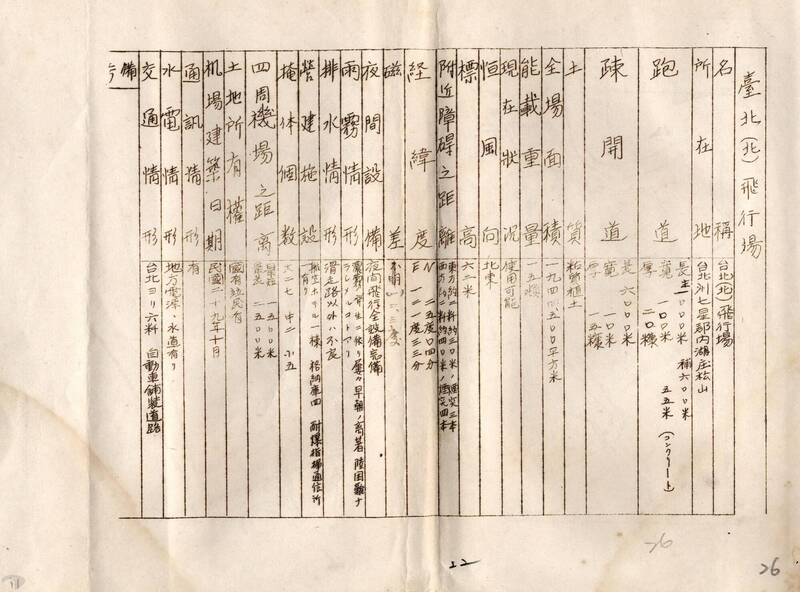 臺北(北)飛行場
名稱 台北(北)飛行場
所在地 台北州七星郡内湖庄松山
跑道 長 主一〇〇〇米 補六〇〇米
寬 一〇〇米 五五米 (コンクリート)
厚 二〇糎
疎開道 長 六〇〇〇米
寬 二〇米
厚 一五糎
土質 粘質植土
全場面積 一九四、五〇〇平方米
能載重量 一五噸
現在狀況 使用可能
恒風向 北東
標高 六、二米
附近障碍之距離 東方約二粁約三〇米ノ煙突三本
西方約二粁約四〇米ノ煙突四本
経緯度 N 二五度〇四分
E 一二一度三三分
磁差 不明
夜間設備 夜間飛行全設備完備
雨霧情形
排水情形 滑走路以外ハ不良
營建施設 一棟 格納庫四 耐爆指揮通信所有り
掩体個數 大二七 中二 小五
四周機場之距离
土地所有權 國有
机場建築日期 民國二十九年十月
通訊情形 有
水電情形 地方電源、水道有り
交通情形 台北ヨリ六粁 自動車鋪装道路
備考
22
26
26